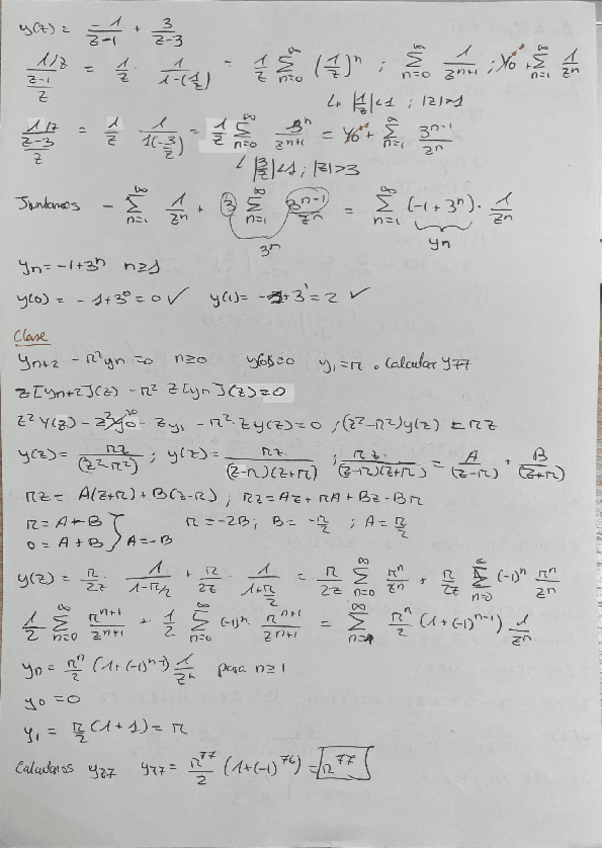 y(z) = -1/(z-1) + 3/(z-3)
(1/z)/((z-1)/z) = 1/z · 1/(1-(1/z)) = 1/z Σ_{n=0}^∞ (1/z)^n ; Σ_{n=0}^∞ 1/z^{n+1} ; y0 + Σ_{n=1}^∞ 1/z^n
↳ |1/z|<1 ; |z|>1
(1/z)/((z-3)/z) = 1/z · 1/(1(-3/z)) = 1/z Σ_{n=0}^∞ 3^n/z^{n+1} = y0 + Σ_{n=1}^∞ 3^{n-1}/z^n
↳ |3/z|<1 ; |z|>3
Juntamos - Σ_{n=1}^∞ 1/z^n + 3 Σ_{n=1}^∞ 3^{n-1}/z^n = Σ_{n=1}^∞ (-1+3^n) · 1/z^n
3^n yn
yn = -1+3^n n≥1
y(0) = -1+3^0 = 0 ✓ y(1) = -1+3^1 = 2 ✓
Clase
yn+2 - π²yn = 0 n≥0 y(0)=0 y1=π. Calcular y77
Z[yn+2](z) - π² Z[yn](z) = 0
z² Y(z) - z²y0 - zy1 - π²·Zy(z) = 0 ; (z²-π²)y(z) = πz
y(z) = πz/(z²-π²) ; y(z) = πz/((z-π)(z+π)) ; πz/((z-π)(z+π)) = A/(z-π) + B/(z+π)
πz = A(z+π) + B(z-π) ; πz = Az + πA + Bz - Bπ
π = A - B } π = -2B ; B = -π/2 ; A = π/2
0 = A + B } A = -B
y(z) = π/2z · 1/(1-π/2) + π/2z · 1/(1+π/2) = π/2z Σ_{n=0}^∞ π^n/z^n + π/2z Σ_{n=0}^∞ (-1)^n π^n/z^n
1/2 Σ_{n=0}^∞ π^{n+1}/z^{n+1} + 1/2 Σ_{n=0}^∞ (-1)^n · π^{n+1}/z^{n+1} = Σ_{n=1}^∞ π^n/2 (1+(-1)^{n-1}) 1/z^n
yn = π^n/2 (1+(-1)^{n-1}) 1/z^n para n≥1
y0 = 0
y1 = π/2 (1+1) = π
Calculamos y77 y77 = π^77/2 (1+(-1)^76) = π^77